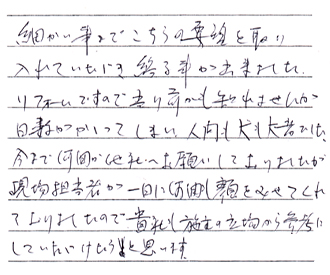 細かい事までこちらの要望を取り
入れていただき終る事が出来ました。
リフォームですので当り前かも知れませんが
日数がかかってしまい人間も犬も大変でした。
今まで何回か他社へお願いしておりましたが
現場担当者が一日に何回も顔をみせてくれ
ておりましたので貴社も施主の立場から参考に
していただけたらと思います